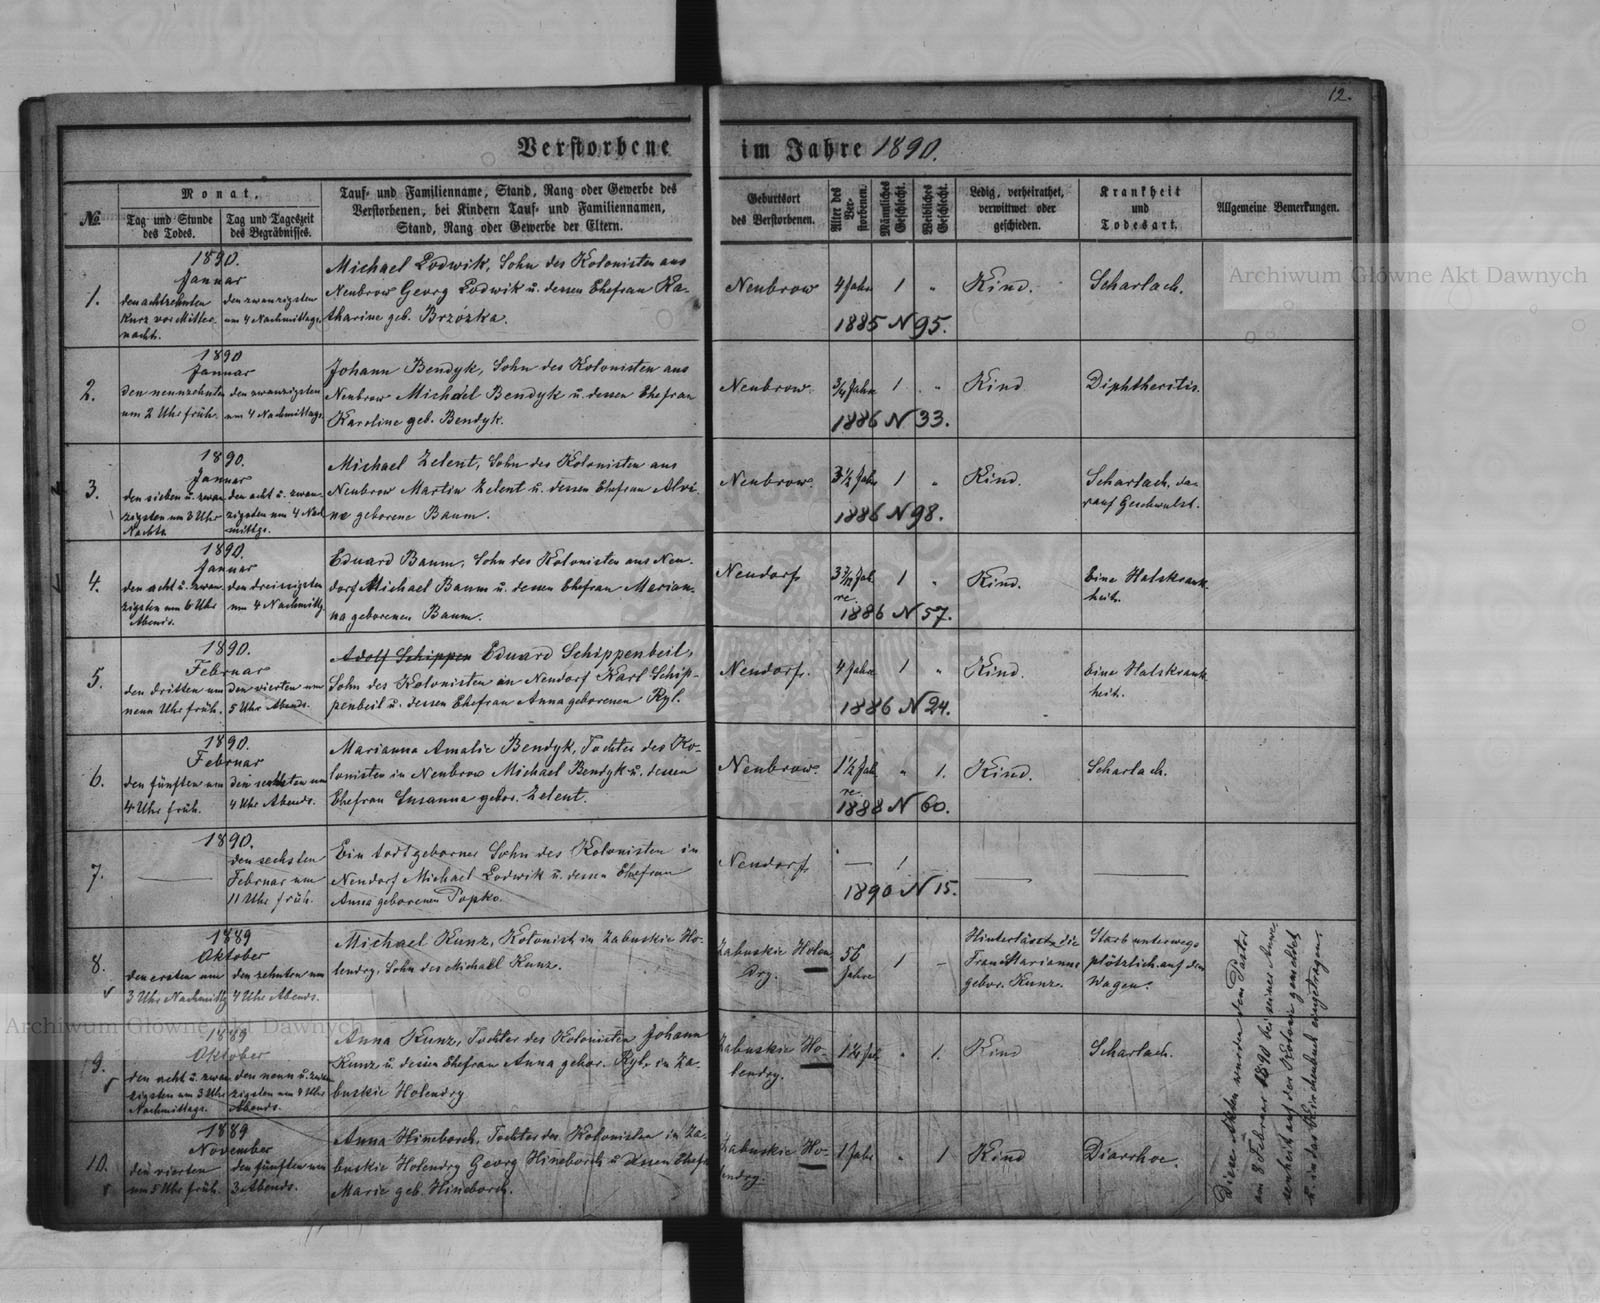 12.
Verstorbene im Jahre 1890.
№
Monat,
Tag und Stunde des Todes.
Tag und Tageszeit des Begräbnisses.
Tauf- und Familienname, Stand, Rang oder Gewerbe des
Verstorbenen, bei Kindern Tauf- und Familiennamen,
Stand, Rang oder Gewerbe der Eltern.
Geburtsort
des Verstorbenen.
Alter des Ver-
storbenen.
Männliches
Geschlecht.
Weibliches
Geschlecht.
Ledig, verheirathet,
verwittwet oder
geschieden.
Krankheit
und
Todesart.
Allgemeine Bemerkungen.
1.
1890.
Januar
den achtzehnten
kurz vor Mitter-
nacht.
den zwanzigsten
um 4 Nachmittags.
Michael Lodwik, Sohn des Kolonisten aus
Neubrow Georg Lodwik u. dessen Ehefrau Ka-
tharine geb. Brzozka.
Neubrow
4 Jahre
1
"
Kind.
Scharlach.
1885 N 95.
2.
1890
Januar
den neunzehnten
um 2 Uhr früh.
den zwanzigsten
um 4 Nachmittags.
Johann Bendyk, Sohn des Kolonisten aus
Neubrow Michael Bendyk u. dessen Ehefrau
Karoline geb. Bendyk.
Neubrow.
3/4 Jahre
1
"
Kind
Diphtheritis.
1886 N 33.
3.
1890.
Januar
den sieben u. zwan-
zigsten um 3 Uhr
Nachts
den acht u. zwan-
zigsten um 4 Nach
mittgs.
Michael Zelent, Sohn des Kolonisten aus
Neubrow Martin Zelent u. dessen Ehefrau Alvi-
ne geborene Baum.
Neubrow.
3 1/2 Jahr
1
"
Kind.
Scharlach, da-
rauf Geschwulst.
1886 N 98.
4.
1890.
Januar
den acht u. zwan
zigsten um 6 Uhr
Abends.
den dreissigsten
um 4 Nachmittg.
Eduard Baum, Sohn des Kolonisten aus Neu-
dorf Michael Baum u. dessen Ehefrau Marian-
na geborenen Baum.
Neudorf
Jah
re.
1
"
Kind.
Eine Halskrank
heit.
1886 N 57.
5.
1890.
Februar
den dritten um
neun Uhr früh.
den vierten um
5 Uhr Abends.
Adolf Schippen Eduard Schippenbeil,
Sohn des Kolonisten in Neudorf Karl Schip-
penbeil u. dessen Ehefrau Anna geborenen Ryl.
Neudorf.
4 Jahre
1
"
Kind.
Eine Halskrank
heit.
1886 N 24.
6.
1890.
Februar
den fünften um
4 Uhr früh.
den sechsten um
4 Uhr Abends.
Marianna Amalie Bendyk, Tochter des Ko-
lonisten in Neubrow Michael Bendyk u. dessen
Ehefrau Susanna gebor. Zelent.
Neubrow.
1 1/2 Jah
re.
"
1.
Kind.
Scharlach.
1888 N 60.
7.
1890.
den sechsten
Februar um
11 Uhr früh.
Ein todtgeborner Sohn des Kolonisten in
Neudorf Michael Lodwik u. dessen Ehefrau
Anna geborenen Popko.
Neudorf
—
1
1890 N 15.
8.
1889
Oktober
den ersten um
3 Uhr Nachmittg
den zehnten um
4 Uhr Abends.
Michael Kunz, Kolonist in Zabuskie Ho-
lendry, Sohn des Michaël Kunz.
Zabuskie Holen
dry.
56
Jahre
1
–
Hinterlässt die
Frau Marianna
gebor. Kunz.
Starb unterwegs
plötzlich auf dem
Wagen.
9.
1889
Oktober
den acht u. zwan
zigsten um 3 Uhr
Nachmittags.
den neun u. zwan
zigsten um 4 Uhr
Abends.
Anna Kunz, Tochter des Kolonisten Johann
Kunz u. dessen Ehefrau Anna gebor. Ryl. in Za-
buskie Holendry
Zabuskie Ho-
lendry.
"
1.
Kind
Scharlach.
10.
1889
November
den vierten
um 5 Uhr früh.
den fünften um
3 Abends.
Anna Hineborch, Tochter des Kolonisten in Za-
buskie Holendry Georg Hineborch u dessen Ehefr
Marie geb. Hineborch.
Zabuskie Ho-
lendry.
1 Jahr
"
1
Kind
Diarrhoe.
Diese Akten wurden dem Pastor
am 8 Februar 1890 bei seiner Anwe-
senheit auf der Kolonie gemeldet
u. in das Kirchenbuch eingetragen.
Archiwum Główne Akt Dawnych
Archiwum Główne Akt Dawnych